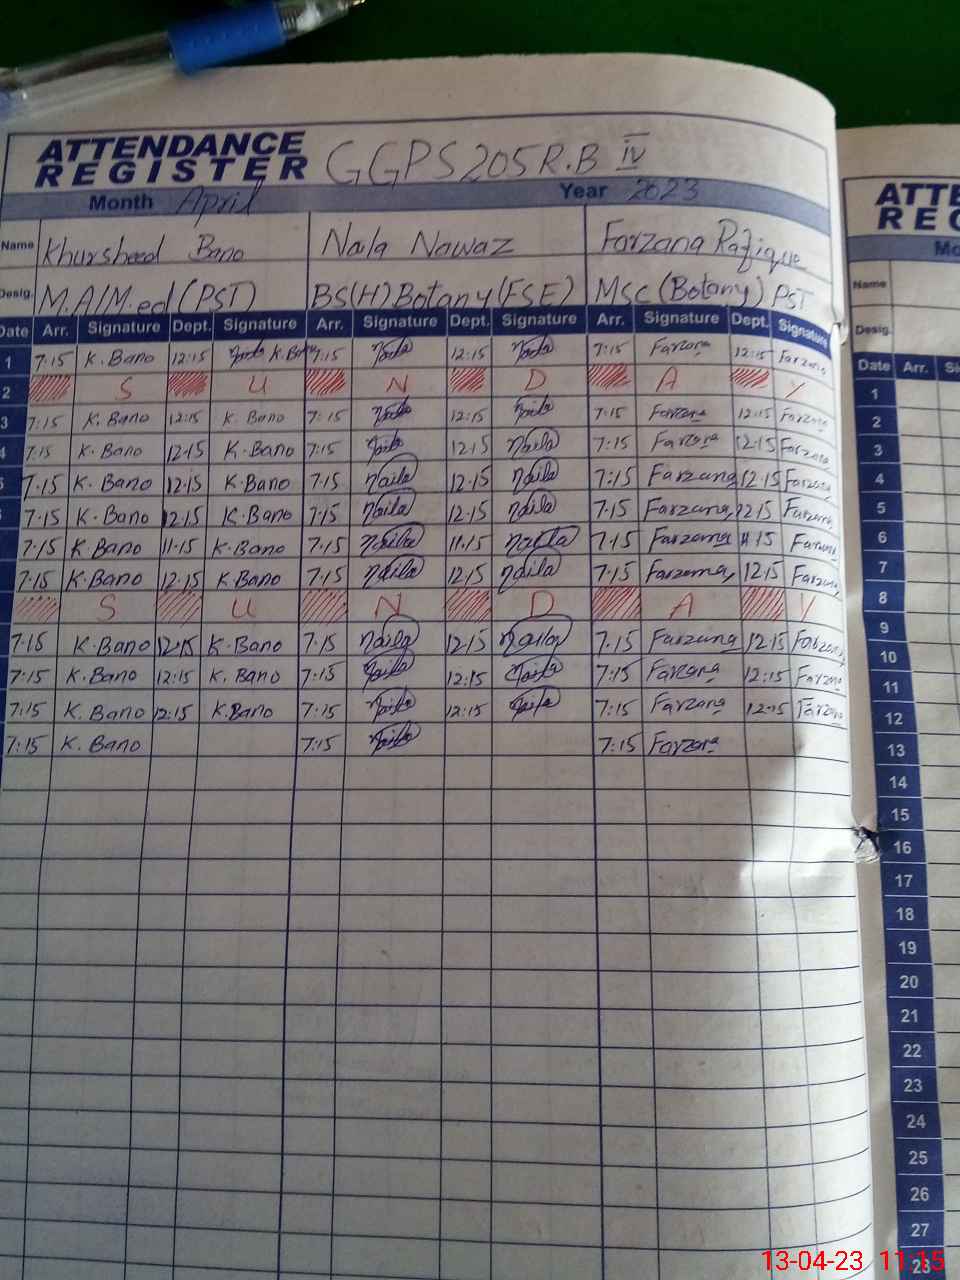 ATTENDANCE REGISTER GGPS 205 R.B IV
Month April Year 2023
Name Khursheed Bano Naila Nawaz Farzana Rafique
Desig. M.A/M.ed (PST) BS(H) Botany (ESE) MSc (Botany) PST
Date Arr. Signature Dept. Signature Arr. Signature Dept. Signature Arr. Signature Dept. Signature
1 7:15 K. Bano 12:15 K. Bano 7:15 Naila 12:15 Naila 7:15 Farzana 12:15 Farzana
2 S U N D A Y
3 7:15 K. Bano 12:15 K. Bano 7:15 Naila 12:15 Naila 7:15 Farzana 12:15 Farzana
4 7:15 K. Bano 12.15 K. Bano 7:15 Naila 12.15 Naila 7:15 Farzana 12.15 Farzana
7.15 K. Bano 12.15 K. Bano 7.15 Naila 12.15 Naila 7:15 Farzana 12.15 Farzana
7.15 K. Bano 12.15 K. Bano 7.15 Naila 12.15 Naila 7.15 Farzana 12.15 Farzana
7.15 K. Bano 11.15 K. Bano 7.15 Naila 11.15 Naila 7.15 Farzana 11.15 Farzana
7.15 K. Bano 12.15 K. Bano 7.15 Naila 12.15 Naila 7.15 Farzana 12.15 Farzana
S U N D A Y
7.15 K. Bano 12.15 K. Bano 7.15 Naila 12.15 Naila 7.15 Farzana 12.15 Farzana
7:15 K. Bano 12:15 K. Bano 7:15 Naila 12:15 Naila 7:15 Farzana 12:15 Farzana
7:15 K. Bano 12:15 K. Bano 7:15 Naila 12:15 Naila 7:15 Farzana 12:15 Farzana
7:15 K. Bano 7:15 Naila 7:15 Farzana
ATTE
REG
Mo
Name
Desig.
Date Arr. Si
1
2
3
4
5
6
7
8
9
10
11
12
13
14
15
16
17
18
19
20
21
22
23
24
25
26
27
28
13-04-23 11:15